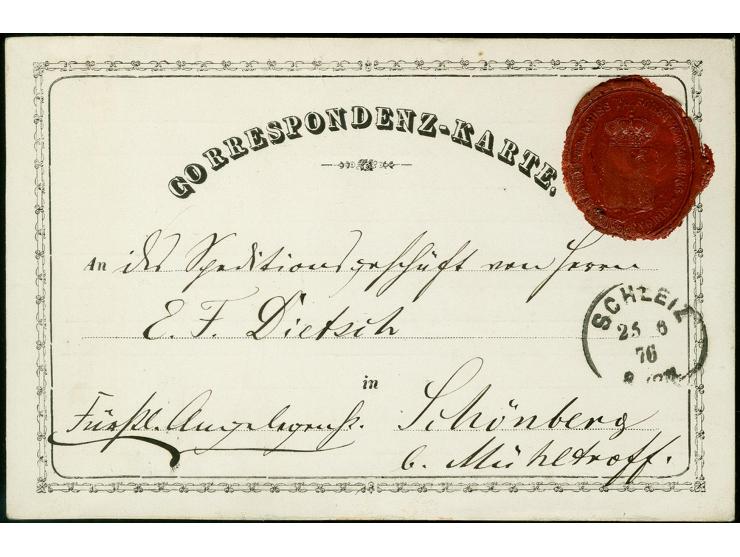 CORRESPONDENZ-KARTE.
An das Speditionsgeschäft von Herrn
E. F. Dietsch
SCHLEIZ
25 6
76
in
Fürstl. Angelegenh.
Schönberg
b. Mühltroff.